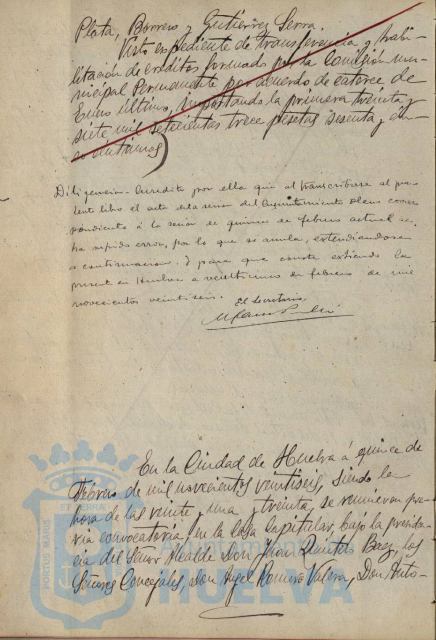 Plata, Borrero y Gutiérrez Serra
Visto expediente de transferencia y habi-
litación de créditos formado por la Comisión mu-
nicipal Permanente por acuerdo de catorce de
Enero último, importando la primera treinta y
siete mil setecientas trece pesetas sesenta y cin-
co centimos
Diligencia - Acredito por ella que al transcribirse al pre-
sente libro el acta de la sesion del Ayuntamiento Pleno corres
pondiente á la sesión de quince de febrero actual se
ha sufrido error, por lo que se anula, extendiendose
a continuacion. Y para que conste extiendo la
presente en Huelva a veintiuno de febrero de mil
novecientos veintiseis.
El Secretario
En la Ciudad de Huelva á quince de
Febrero de mil novecientos veintiseis, siendo la
hora de las veinte, una y treinta, se reunieron pre-
via convocatoria, en la Casa Capitular, bajo la presiden-
cia del Señor Alcalde Don Juan Quintero Baez, los
Señores Concejales, Don Angel Romero Valera, Don Anto-
PORTUS MARIS
ET TERRAE
HUELVA